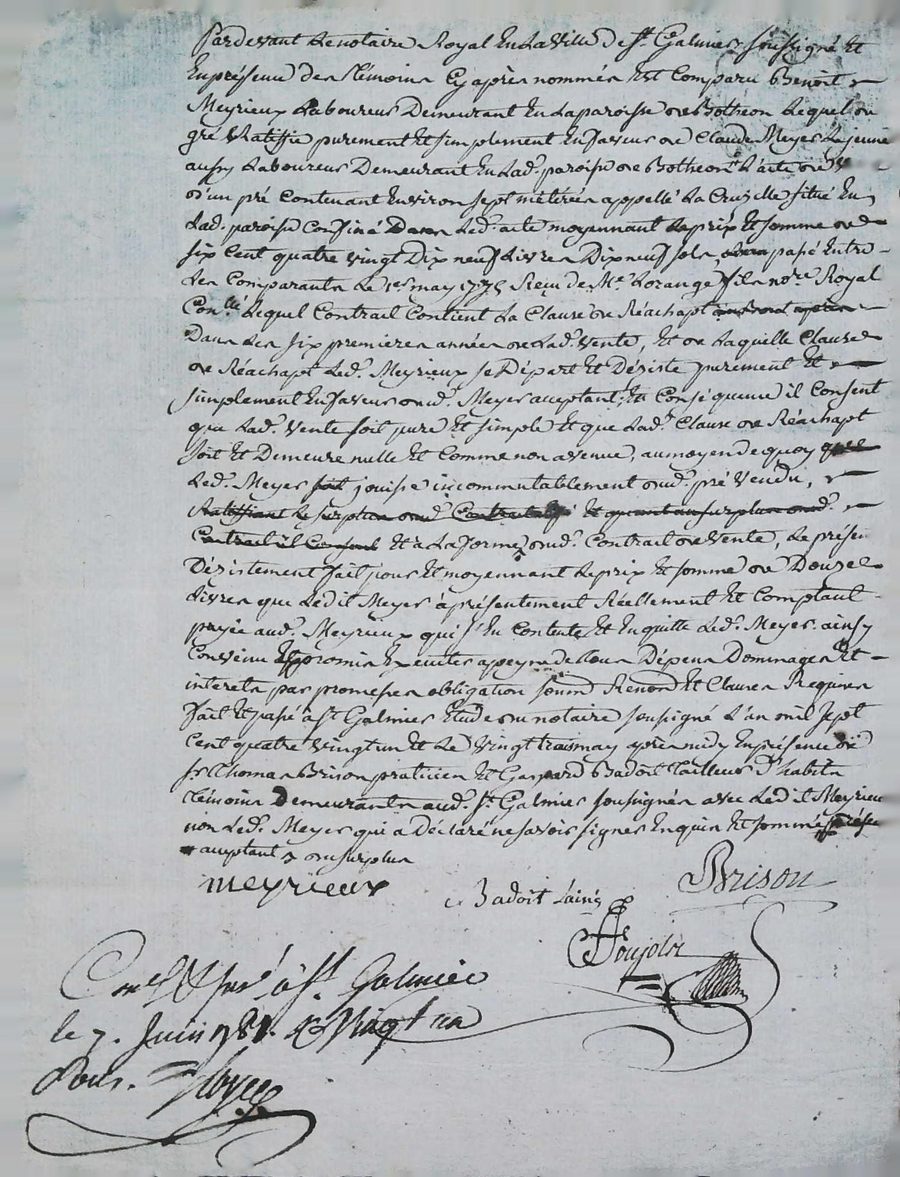 Pardevant Le notaire Royal En La Ville De St. Galmier soussigné Et
En présence des témoins Cy après nommés Est Comparu Benoit
Meyrieux Laboureur Demeurant En La paroisse de Botheon Lequel de
gré Ratiffie purement Et simplement En faveur de Claude Meyer Le jeune
aussy Laboureur Demeurant En Lad. paroisse de Botheon L'acte de
d'un pré Contenant Environ sept métérées appellé La Cruzille situé En
Lad. paroisse Confiné Dans Led. acte moyennant Le prix Et somme de
six Cent quatre vingt Dix neuf Livres Dix neuf sols, passé Entre
Les Comparants Le 1er may Reçu de Me. Lorange fils nore. Royal
Lequel Contrait Contient La Clause de Réachapt
Dans Les six premieres années de Lad. Vente, Et de Laquelle Clause
de Réachapt Led. Meyrieux se Départ Et Désiste purement Et
simplement En faveur dud. Meyer acceptant, Et Conséquence il Consent
que Lad. Vente soit pure Et simple Et que Lad. Clause de Réachapt
soit Et Demeure nulle Et Comme non avenue, au moyen de quoy
Led. Meyer jouisse incommutablement dud. pré Vendu,
Ratiffiant Le surplus dud. Contrait Et quant au surplus dud.
Contrait il Consent Et à La forme dud. Contrait de Vente, Le présent
Désistement fait pour Et moyennant Le prix Et somme de Douze
Livres que Ledit Meyer à présentement Réellement Et Comptant
payée aud. Meyrieux qui s'En Contente Et En quitte Led. Meyer. ainsy
Convenu Et promis Exécuter a peyne de tous Dépens Dommages Et
interets par promesses obligation soumd. Renond. Et Clauses Requises
fait Et passé à St. Galmier Etude du notaire soussigné L'an mil sept
Cent quatre vingt un Et Le Vingt trois may après midy En présence de
sr. Thomas Brison praticien Et Gaspard Badoit tailleur D'habits
témoins Demeurants aud. St. Galmier soussignés avec Ledit Meyrieux
non Led. Meyer qui a Déclaré ne savoir signer Enquis Et sommé
acceptant du surplus
meyrieux
Badoit L'ainé
Brison
Conlé & jné à St. Galmier
le 7. Juin 1781.